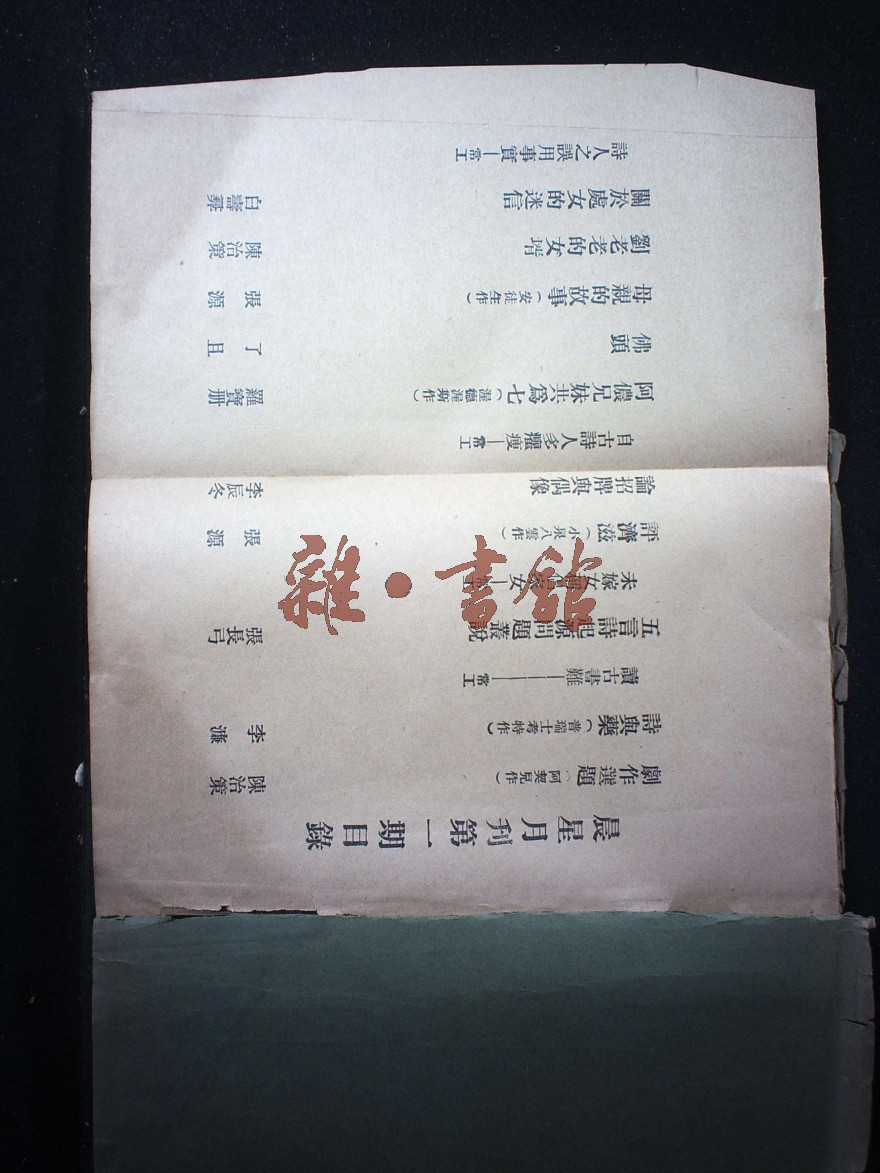 晨星月刊第一期目錄
劇作選題(阿契兒作) 陳治策
詩與藥(普瑞士考特作) 李濂
讀古書難——常工
五言詩起源問題叢說 張長弓
未嫁女 女——常工
評濟滋(小泉八雲作) 張源
論招牌與偶像 李辰冬
自古詩人多癯瘦—常工
阿儂兄妹共爲七(渥德渥斯作) 羅寶册
佛頭 了且
母親的故事(安徒生作) 張源
劉老老的女壻 陳治策
關於處女的迷信 白壽彝
詩人之誤用事實—常工
雜·書館